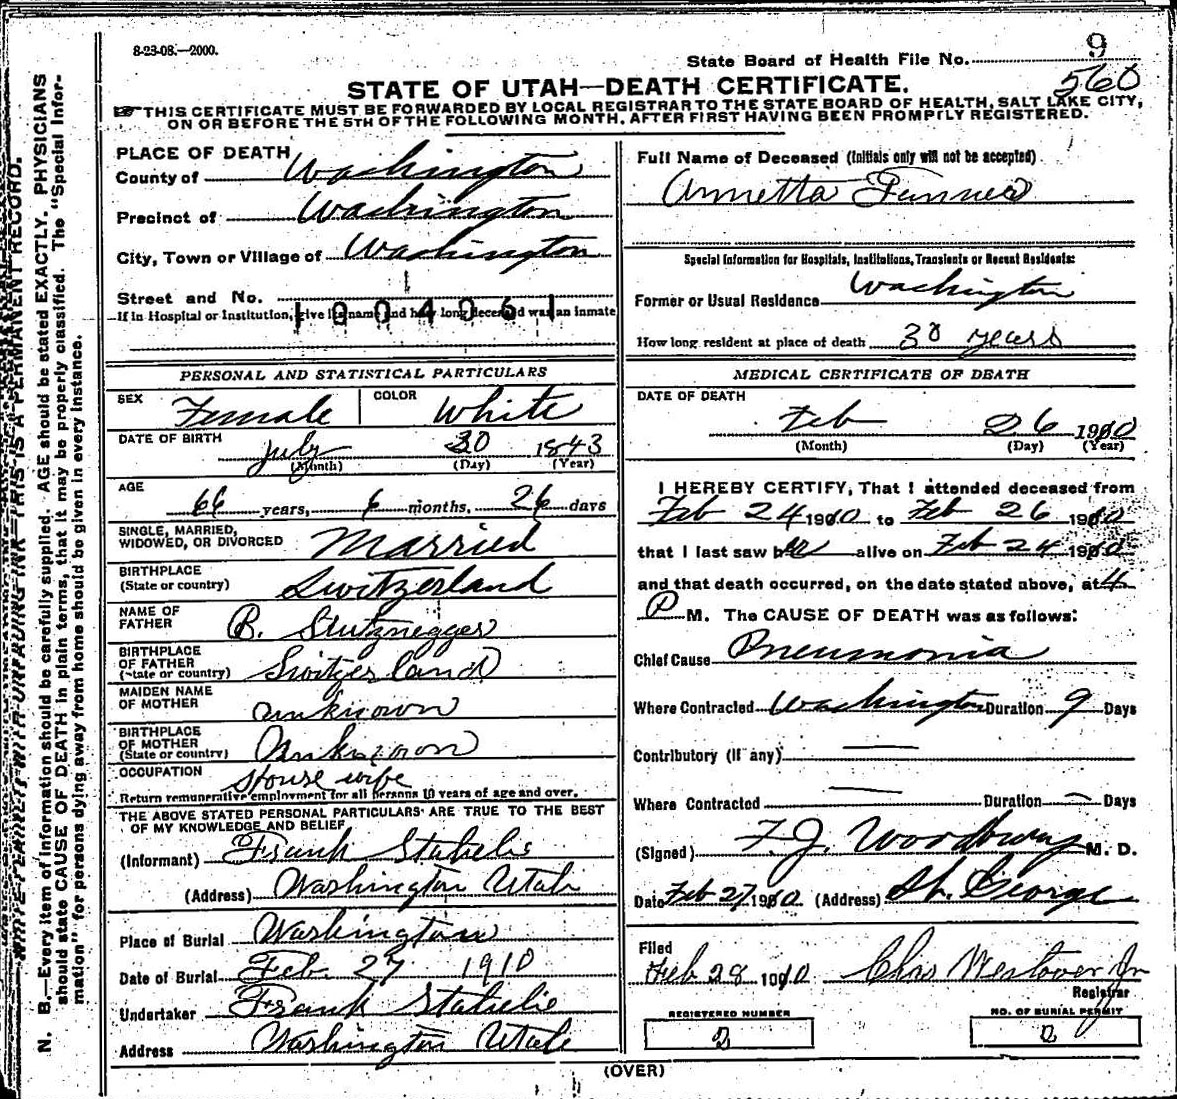 8-23-08.—2000.
State Board of Health File No. 9
560
STATE OF UTAH—DEATH CERTIFICATE.
☞THIS CERTIFICATE MUST BE FORWARDED BY LOCAL REGISTRAR TO THE STATE BOARD OF HEALTH, SALT LAKE CITY,
ON OR BEFORE THE 5TH OF THE FOLLOWING MONTH, AFTER FIRST HAVING BEEN PROMPTLY REGISTERED.
PLACE OF DEATH
County of Washington
Precinct of Washington
City, Town or Village of Washington
Street and No.
1004061
If in Hospital or Institution, give its name and how long deceased was an inmate
PERSONAL AND STATISTICAL PARTICULARS
SEX Female COLOR White
DATE OF BIRTH July 30 1843
(Month) (Day) (Year)
AGE 66 years, 6 months, 26 days
SINGLE, MARRIED,
WIDOWED, OR DIVORCED Married
BIRTHPLACE
(State or country) Switzerland
NAME OF
FATHER B. Stutznegger
BIRTHPLACE
OF FATHER
(State or country) Switzerland
MAIDEN NAME
OF MOTHER unknown
BIRTHPLACE
OF MOTHER
(State or country) Unknown
OCCUPATION House wife
Return remunerative employment for all persons 10 years of age and over.
THE ABOVE STATED PERSONAL PARTICULARS ARE TRUE TO THE BEST
OF MY KNOWLEDGE AND BELIEF
(Informant) Frank Stahelie
(Address) Washington Utah
Place of Burial Washington
Date of Burial Feb. 27 1910
Undertaker Frank Stahelie
Address Washington Utah
Full Name of Deceased (Initials only will not be accepted)
Annetta
Special Information for Hospitals, Institutions, Transients or Recent Residents:
Former or Usual Residence Washington
How long resident at place of death 30 years
MEDICAL CERTIFICATE OF DEATH
DATE OF DEATH
Feb 26 1910
(Month) (Day) (Year)
I HEREBY CERTIFY, That I attended deceased from
Feb 24 1910 to Feb 26 1910
that I last saw her alive on Feb 24 1910
and that death occurred, on the date stated above, at 4
P M. The CAUSE OF DEATH was as follows:
Chief Cause Pneumonia
Where Contracted Washington Duration 9 Days
Contributory (if any) —
Where Contracted — Duration — Days
(Signed) F. J. Woodbury M. D.
Date Feb 27 1910 (Address) St. George
Filed
Feb 28 1910 Chas Westover Jr
Registrar
REGISTERED NUMBER
2
NO. OF BURIAL PERMIT
2
(OVER)
WRITE PLAINLY WITH UNFADING INK—THIS IS A PERMANENT RECORD.
N. B.—Every item of information should be carefully supplied. AGE should be stated EXACTLY. PHYSICIANS
should state CAUSE OF DEATH in plain terms, that it may be properly classified. The "Special Infor-
mation" for persons dying away from home should be given in every instance.